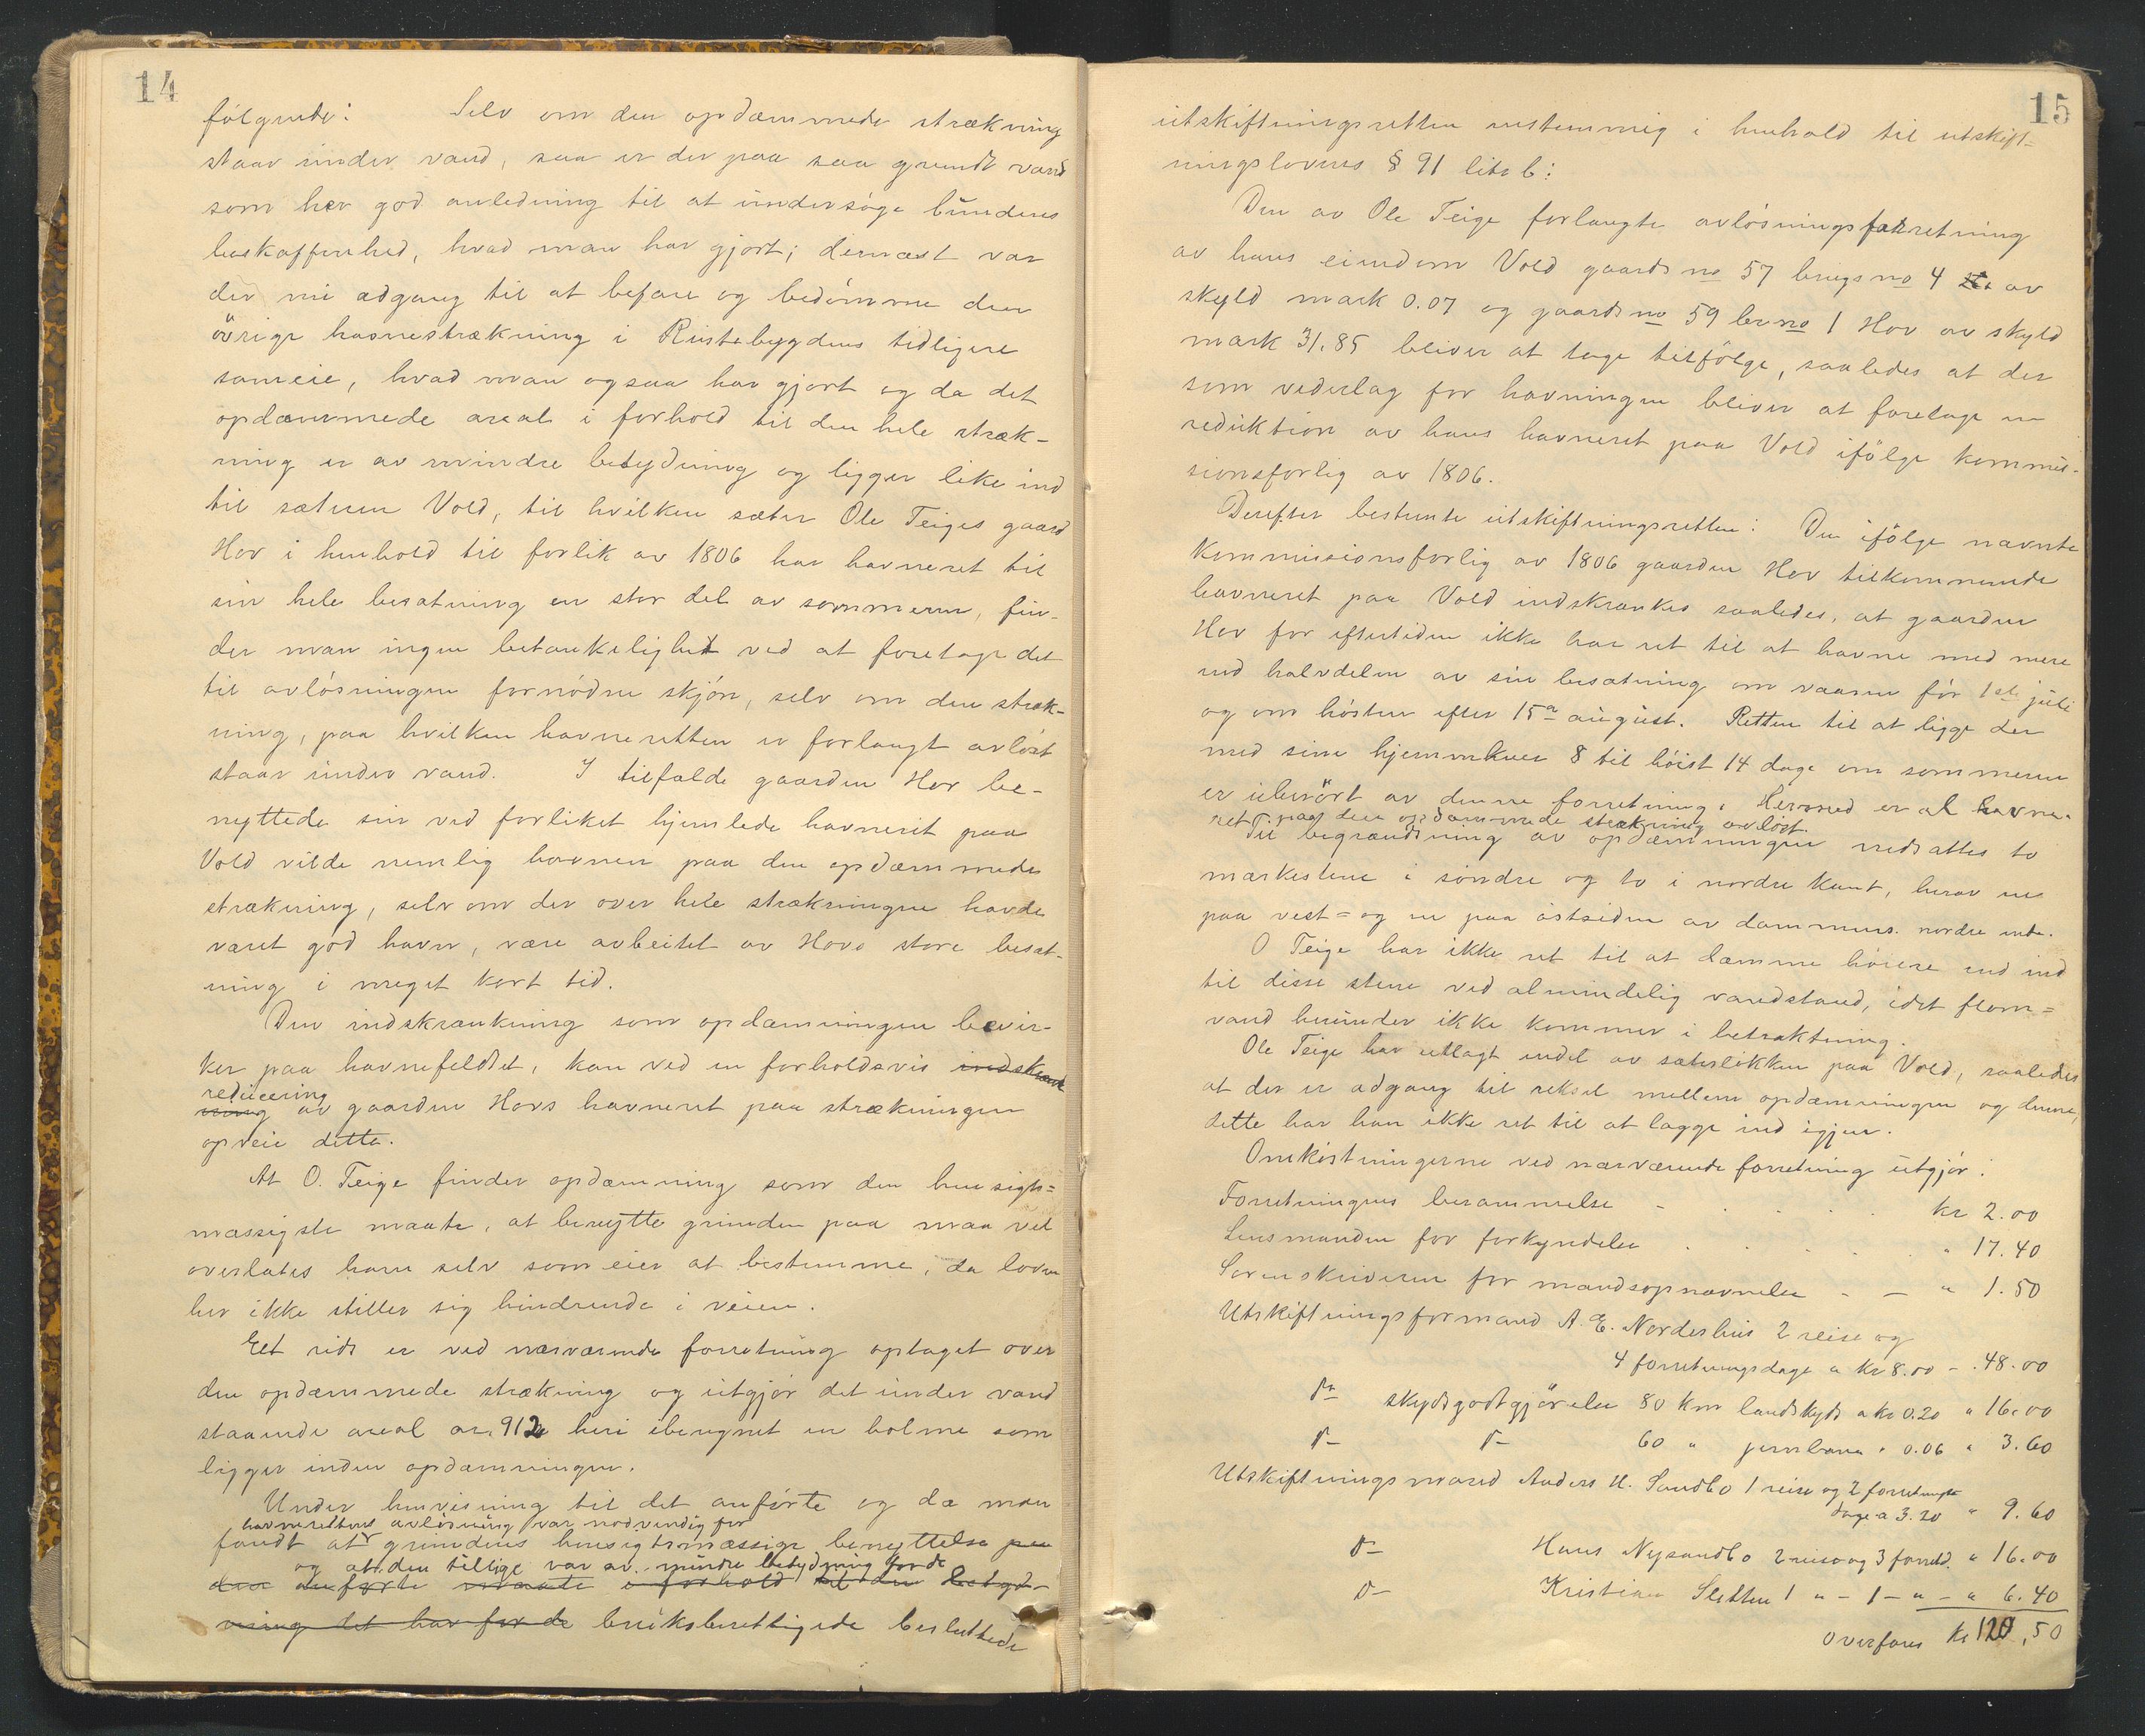 14
følgende: Selv om den opdæmmede strækning
staar under vand, saa er der paa saa grundt vand
som her god anledning til at undersøge bundens
beskaffenhed, hvad man har gjort; dernæst var
der nu adgang til at befare og bedømme den
øvrige havnestrækning i Rustebygdens tidligere
sameie, hvad man ogsaa har gjort og da det
opdæmmede areal i forhold til den hele stræk-
ning er av mindre betydning og ligger like ind
til sæteren Vold, til hvilken sæter Ole Teiges gaard
Hov i henhold til forlik av 1806 har havneret til
sin hele besætning en stor del av sommeren, fin-
der man ingen betænkelighet ved at foretage det
til avløsningen fornødne skjøn, selv om den stræk-
ning, paa hvilken havneretten er forlangt avløst
staar under vand. I tilfælde gaarden Hov be-
nyttede sin ved forliket hjemlede havneret paa
Vold vilde nemlig havnen paa den opdæmmede
strækning, selv om der over hele strækningen havde
været god havn, være avbeitet av Hovs store besæt-
ning i meget kort tid.
Den indskrænkning som opdæmningen bevir-
ker paa havnefeldtet, kan ved en forholdsvis indskrænk
reducering
ning av gaarden Hovs havneret paa strækningen
opveie dette.
At O. Teige finder opdæmning som den hensigts=
mæssigste maate, at benytte grunden paa maa vel
overlates ham selv som eier at bestemme, da loven
her ikke stiller sig hindrende i veien.
Et rids er ved nærværende forretning optaget over
den opdæmmede strækning og utgjør det under vand
staaende areal ar. 912 heri iberegnet en holme som
ligger inden opdæmningen.
Under henvisning til det anførte og da man
havnerettens avløsning var nødvendig for
fandt at grundens hensigtsmæssige benyttelse paa
og at den tillige var av mindre betydning for de
den anførte maate i forhold til den betyd-
ning det har for de bruksberettigede besluttede
15
utskiftningsretten enstemmig i henhold til utskift=
ningslovens § 91 litr b:
Den av Ole Teige forlangte avløsningsforretning
av hans eiendom Vold gaards no 57 brugs no 4 av
skyld mark 0.07 og gaards no 59 br no 1 Hov av skyld
mark 31.85 bliver at tage tilfølge, saaledes at der
som vederlag for havningen bliver at foretage en
reduktion av hans havneret paa Vold ifølge kommis-
sionsforlig av 1806.
Derefter bestemte utskiftningsretten: Den ifølge nævnte
Kommissionsforlig av 1806 gaarden Hov tilkommende
havneret paa Vold indskrænkes saaledes, at gaarden
Hov for eftertiden ikke har ret til at havne med mere
end halvdelen av sin besætning om vaaren før 1ste juli
og om høsten efter 15de august. Retten til at ligge der
med sine hjemmekuer 8 til høist 14 dage om sommeren
er uberørt av denne forretning. Hermed er al havne-
ret paa den opdæmmede strækning avløst.
Til begrændsning av opdæmningen nedsattes to
merkestene i søndre og to i nordre kant, herav en
paa vest= og en paa østsiden av dammens nordre ende.
O Teige har ikke ret til at dæmme høiere end ind
til disse stene ved almindelig vandstand, idet flom=
vand herunder ikke kommer i betraktning.
Ole Teige har utlagt endel av sæterlikken paa Vold, saaledes
at der er adgang til rekst mellem opdæmningen og denne,
dette har han ikke ret til at lægge ind igjen.
Omkostningerne ved nærværende forretning utgjør:
Forretningens berammelse - . . . . kr 2.00
Lensmanden for forkyndelse . . . . . " 17.40
Sorenskriveren for mandsopnævnelse - - " 1.50
Utskiftningsformand A. E. Nordeshus 2 reise og
4 forretningsdage a kr 8.00 - . 48.00
do skydsgodtgjørelse 80 km landskyds a kr 0.20 " 16.00
do do 60 " jernbane " 0.06 " 3.60
Utskiftningsmænd Anders H. Sandbo 1 reise og 2 forretnings
dage a 3.20 " 9.60
do Hans Nysandbo 2 reise og 3 forretn. " 16.00
do Kristian Sletten 1 " - 1 - " - " 6.40
Overføres kr 120.50